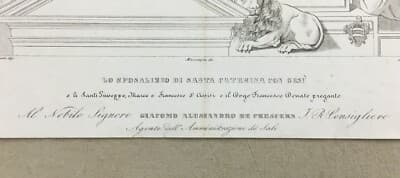 LO SPOSALIZIO DI SANTA CATERINA CON GESÙ
e li Santi Giuseppe, Marco e Francesco d'Assisi e il Doge Francesco Donato pregante
Al Nobile Signore GIACOMO ALESSANDRO DE I. R. Consigliere
Agente dell' Amministrazione di Sali